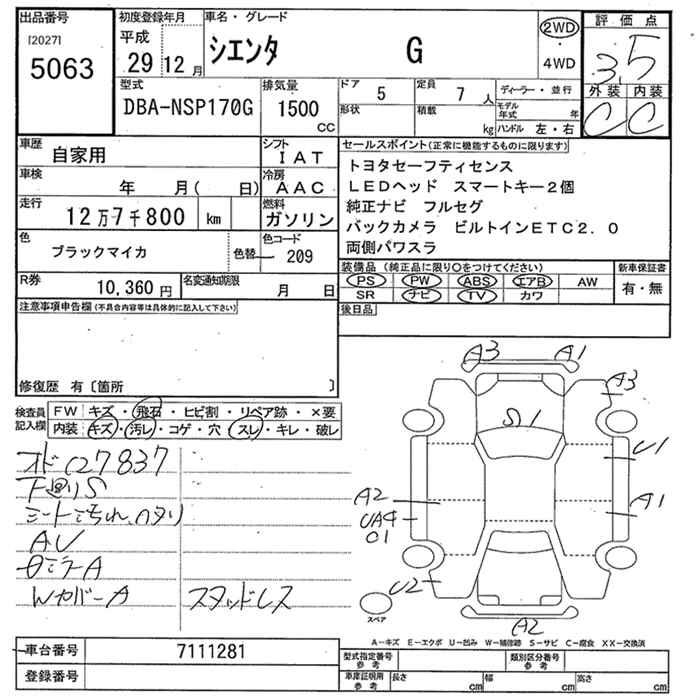 出品番号
[2027]
5063
初度登録年月
平成
29年 12月
車名・グレード
シエンタ G
2WD
・
4WD
評価点
3.5
外装 内装
C C
型式
DBA-NSP170G
排気量
1500
cc
ドア 5
形状
定員 7 人
積載 kg
ディーラー・並行
モデル年式 年
ハンドル 左・右
車歴
自家用
シフト
IAT
車検
年 月( 日)
冷房
AAC
走行
12万7千800 km
燃料
ガソリン
色
ブラックマイカ
色替
色コード
209
R券
10,360円
名変通知期限
月 日
セールスポイント(正常に機能するものに限ります)
トヨタセーフティセンス
LEDヘッド スマートキー2個
純正ナビ フルセグ
バックカメラ ビルトインETC2.0
両側パワスラ
装備品(純正品に限り○をつけてください)
PS PW ABS エアB AW
SR ナビ TV カワ
新車保証書
有・無
後日品
注意事項申告欄(不具合内容等は具体的に記入して下さい)
修復歴 有〔箇所 〕
検査員記入欄
FW キズ・飛石・ヒビ割・リペア跡・×要
内装・キズ・汚レ・コゲ・穴・スレ・キレ・破レ
オド127837
下回りS
シートよごれ、ハタリ
AU
WカバーA
スタッドレス
A3
A1
A3
S1
U1
A1
A2
UA4
01
U2
A2
スペア
A−キズ E−エクボ U−凹み W−補修跡 S−サビ C−腐食 XX−交換済
車台番号
7111281
登録番号
型式指定番号
参考
類別区分番号
参考
車庫証明用
参考
長さ cm
幅 cm
高さ cm